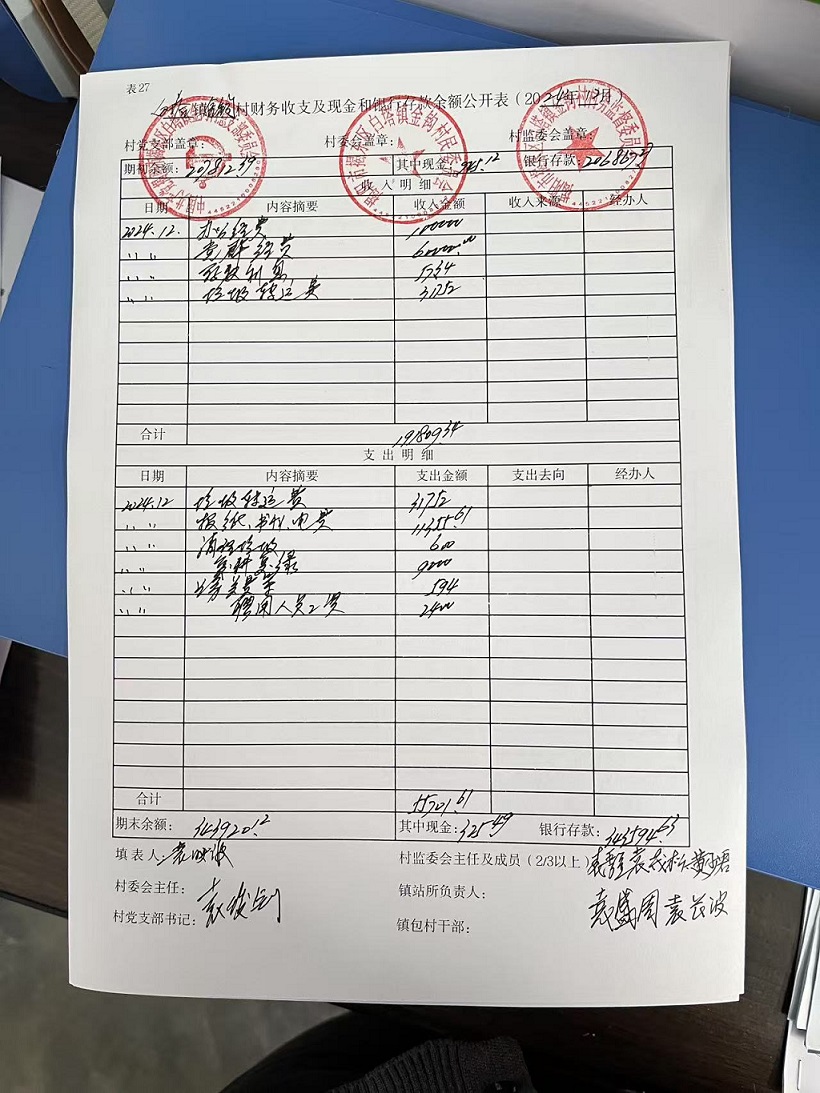 表27
白塔镇金钩村财务收支及现金和银行存款余额公开表(2024年12月)
村党支部盖章: 村委会盖章: 村监委会盖章:
期初余额: 207812.39 其中现金: 945.12 银行存款: 206867.27
收入明细
日期 内容摘要 收入金额 收入来源 经办人
2024.12. 办公经费 100000
〃 〃 党群经费 60000.00
〃 〃 存款利息 57.34
〃 〃 垃圾转运费 31752
合计 191809.34
支出明细
日期 内容摘要 支出金额 支出去向 经办人
2024.12 垃圾转运费 31752
〃 〃 报纸、书刊、电费 11355.61
〃 〃 清理垃圾 600
〃 〃 9000
〃 〃 594
〃 〃 聘用人员工资 2400
合计 55701.61
期末余额: 343920.12 其中现金: 325.49 银行存款: 343594.63
填表人: 袁映波 村监委会主任及成员(2/3以上)
村委会主任: 镇站所负责人: 袁盛周 袁长波
村党支部书记: 袁俊剑 镇包村干部: